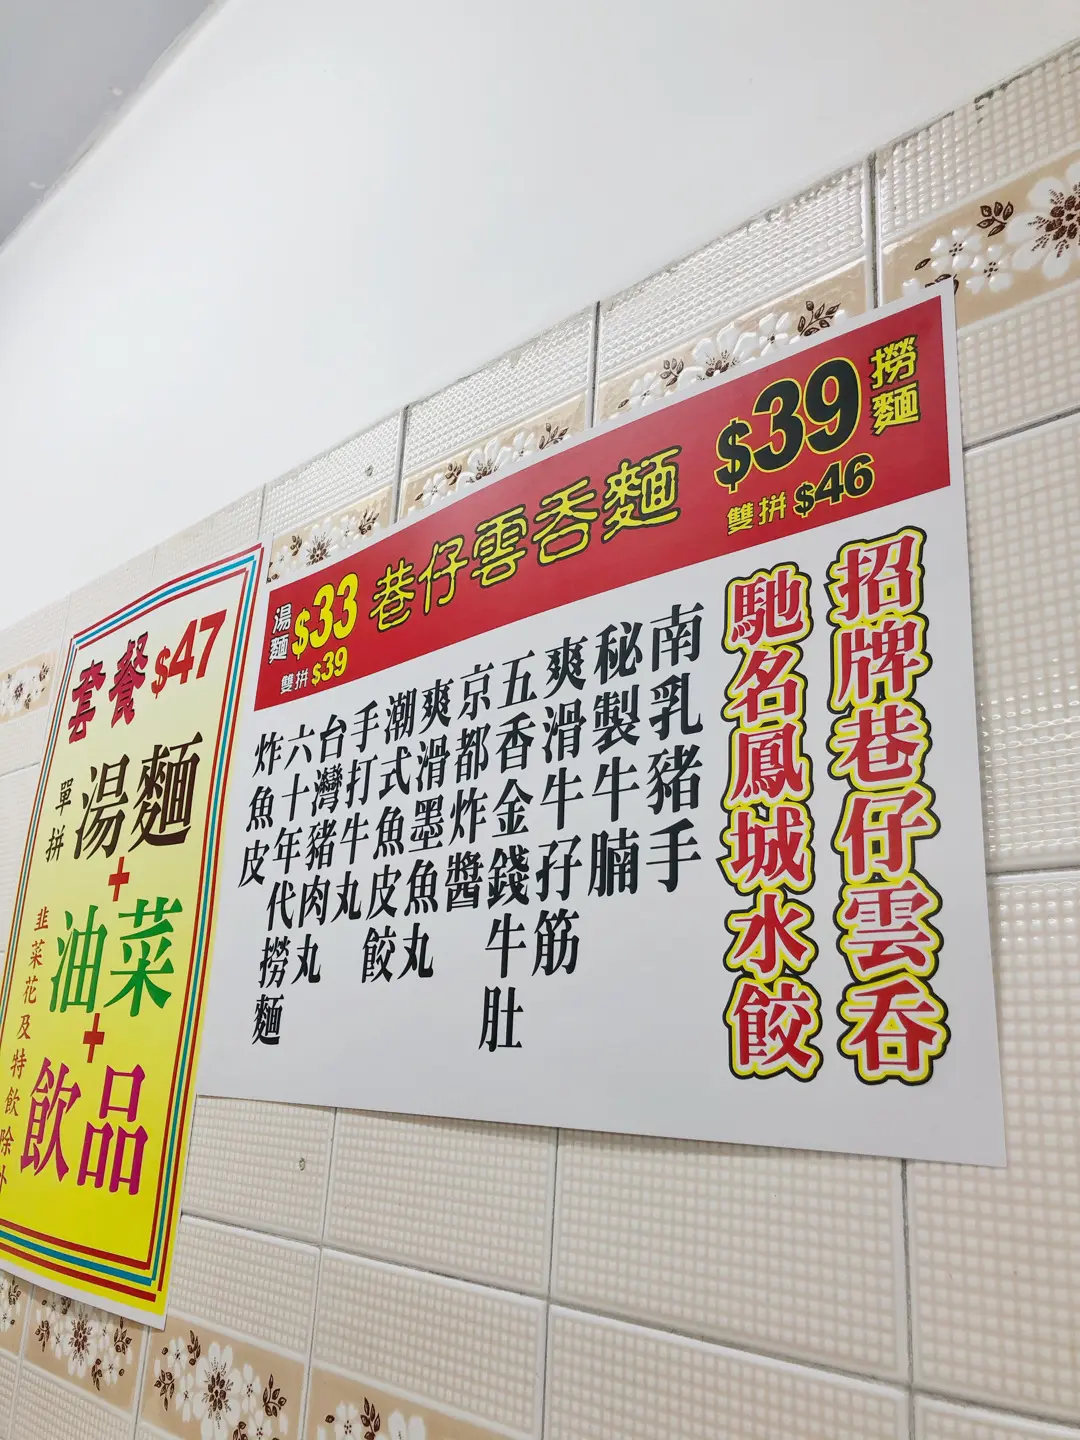 巷仔雲呑麵
湯麵 $33
雙拼 $39
撈麵 $39
雙拼 $46
招牌巷仔雲呑
馳名鳳城水餃
南乳豬手
秘製牛腩
爽滑牛孖筋
五香金錢牛肚
京都炸醬
爽滑墨魚丸
潮式魚皮餃
手打牛丸
台灣豬肉丸
六十年代撈麵
炸魚皮
套餐 $47
單拼
湯麵
+
油菜
+
飲品
韭菜花及特飲除外